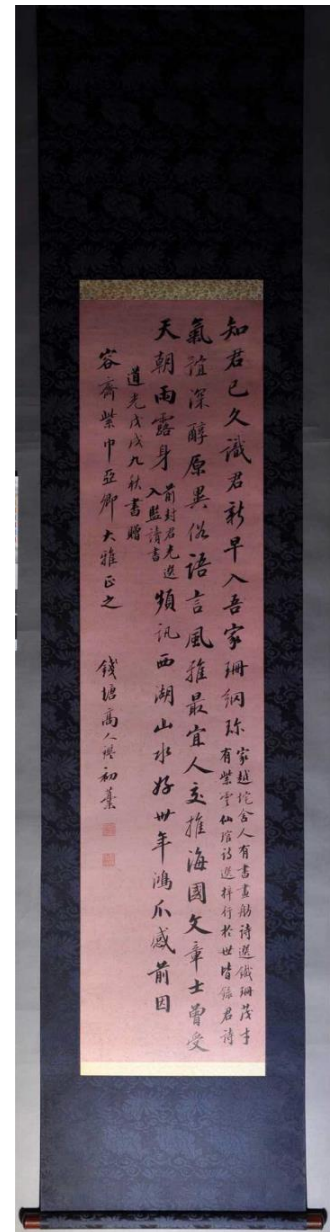 知君已久識君新早入吾家珊網珎
家越垞舍人有書畫舫詩選鐵珊茂才
有紫雲仙館詩選梓行於世皆錄君詩
氣誼深醇原異俗語言風雅最宜人交推海國文章士曾受
天朝雨露身
前封君充選
入監讀書
頻訊西湖山水好卅年鴻爪感前因
道光戊戌九秋書贈
容齋紫巾亞卿大雅正之 錢塘高人鑑初藁